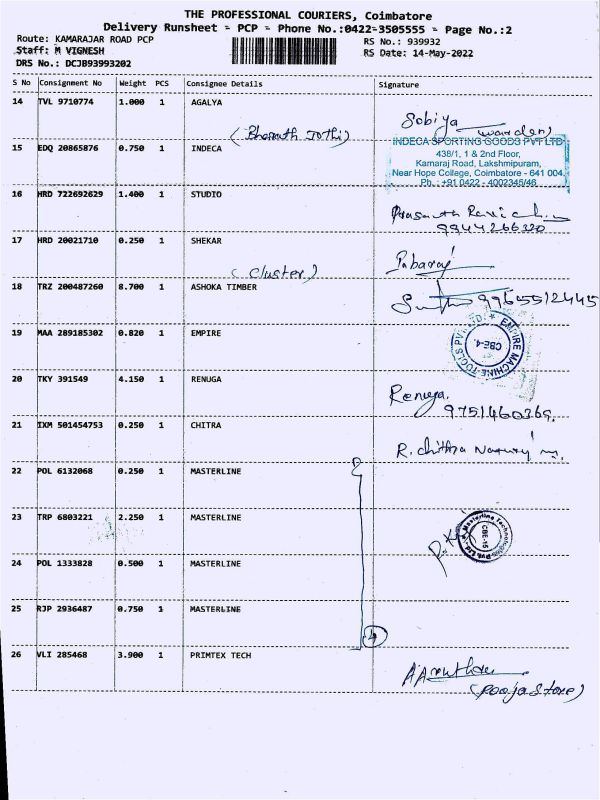 THE PROFESSIONAL COURIERS, Coimbatore
Delivery Runsheet - PCP - Phone No.:0422-3505555 - Page No.:2
Route: KAMARAJAR ROAD PCP
RS No.: 939932
Staff: M VIGNESH
RS Date: 14-May-2022
DRS No.: DCJB93993202
S No Consignment No Weight PCS Consignee Details Signature
14 TVL 9710774 1.000 1 AGALYA
(Bharath Jothi) Sobiya (warden)
15 EDQ 20865876 0.750 1 INDECA
INDECA SPORTING GOODS PVT LTD
438/1, 1 & 2nd Floor,
Kamaraj Road, Lakshmipuram,
Near Hope College, Coimbatore - 641 004.
Ph. : +91 0422 - 4002345/46
16 HRD 722692629 1.400 1 STUDIO
9944266320
17 HRD 20021710 0.250 1 SHEKAR
(Cluster)
18 TRZ 200487260 8.700 1 ASHOKA TIMBER
9965512445
19 MAA 289185302 0.820 1 EMPIRE
EMPIRE MACHINE TOOLS PVT. LTD.
CBE-4.
20 TKY 391549 4.150 1 RENUGA
Renuga.
9751460369.
21 IXM 501454753 0.250 1 CHITRA
R. chithra
22 POL 6132068 0.250 1 MASTERLINE
23 TRP 6803221 2.250 1 MASTERLINE
Masterline Technologies Pvt. Ltd.
CBE-15
24 POL 1333828 0.500 1 MASTERLINE
25 RJP 2936487 0.750 1 MASTERLINE
4
26 VLI 285468 3.900 1 PRIMTEX TECH
(Pooja Store)